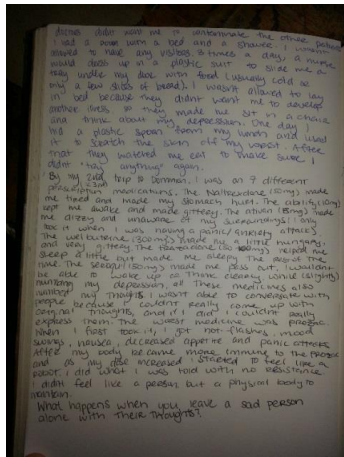 doctors didnt want me to contaminate the other patients
I had a room with a bed and a shower. I wasn't
allowed to have any visitors. 3 times a day, a nurse
would dress up in a plastic suit to slide me a
tray under my door with food (usually cold
a few slices of bread). I wasn't allowed to lay
in bed because they didnt want me to develop
another illness so they made me sit in a chair
and think about my depression. One day I
hid a plastic spoon from my lunch and used
it to scratch the skin off my wrist. After
that they watched me eat to make sure I
didnt "try" anything again.
By my 2nd trip to common, I was on 7 different
prescription medications. The Naltrexone (50mg) made
me tired and made my stomach hurt. The abilify (10mg)
kept me awake and made jittery. The ativan made
me dizzy and unaware of my surroundings I only
took it when I was having a panic/anxiety attack
The wellbutrin (300mg) made me a little hungry
and very jittery. The trazodone helped me
sleep a little but made me sleepy the rest of the
time. The seroquel (50mg) made me pass out, I wouldn't
be able to wake up or think clearly while slightly
numbing my depression. all these medicines also
numbed my thoughts I wasn't able to converse with
people because I couldn't really come up with
original thoughts, and if I did I couldnt really
express them. The worst medicine was prozac
When I first took it, I got hot-flashes, mood
swings, nausea, decreased appetite and panic attacks
After my body became more immune to the prozac
and as my dose increased I started to feel like a
robot. I did what I was told with no resistance
I didnt feel like a person but a physical body to
maintain.
What happens when you leave a sad person
alone with their thoughts?